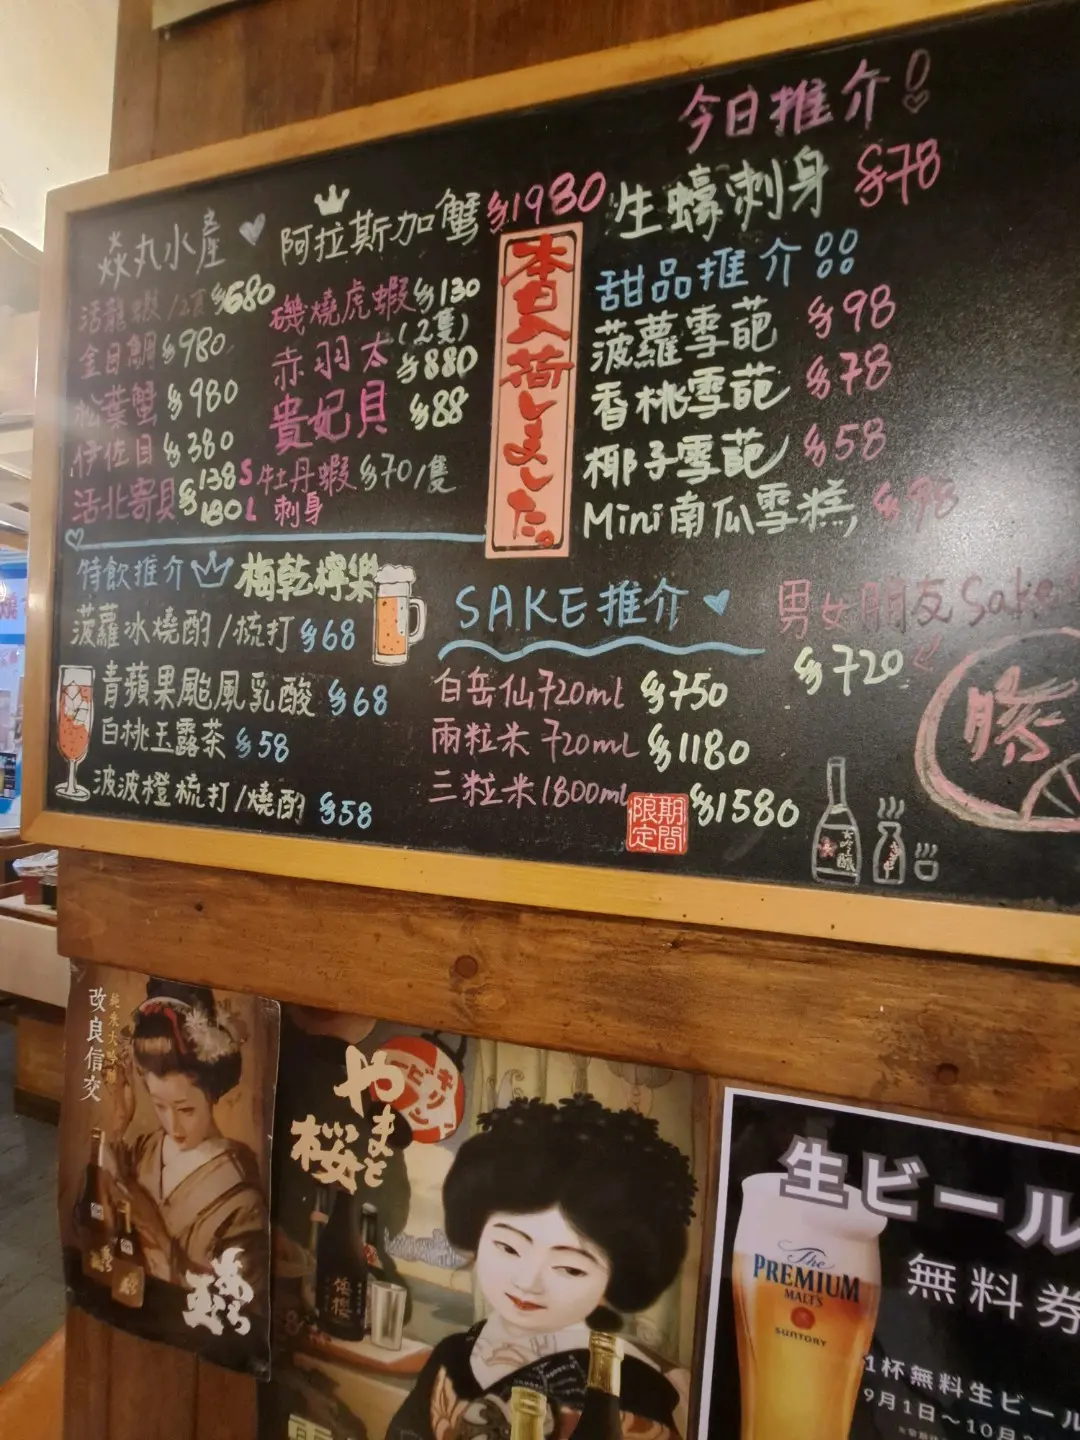 今日推介!
生蠔刺身 $78
甜品推介
菠蘿雪葩 $98
香桃雪葩 $78
椰子雪葩 $58
Mini南瓜雪糕, $98
焱丸水產
阿拉斯加蟹 $1980
活龍蝦/2隻 $680
金目鯛 $980
松葉蟹 $980
伊佐目 $380
活北寄貝 $138 S
$180 L
磯燒虎蝦 $130
(2隻)
赤羽太 $880
貴妃貝 $88
牡丹蝦 $70/隻
刺身
本日入荷しました。
特飲推介
梅乾檸樂
菠蘿冰燒酌/梳打 $68
青蘋果颱風乳酸 $68
白桃玉露茶 $58
波波橙梳打/燒酌 $58
SAKE推介
白岳仙720ml $750
兩粒米720ml $1180
三粒米1800ml $1580
期間
限定
男女朋友Sake
$720
勝
大吟釀
純米大吟醸
改良信交
やまと
桜
キリン
ビール
生ビール
無料券
The
PREMIUM
MALT'S
SUNTORY
1杯無料生ビール
9月1日～10月